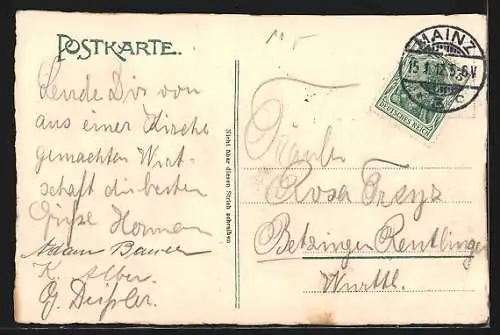 POSTKARTE.
Sende Dir von
aus einer Kirche
gemachten Wirt-
schaft die besten
Grüße Herman
Adam Bauer
K. Alber
G. Deißler.
Nicht über diesen Strich schreiben
MAINZ
15.1.12.5-6V
C
DEUTSCHES REICH
Fräulein
Rosa Freyz
Betzingen Reutlingen
Württl.